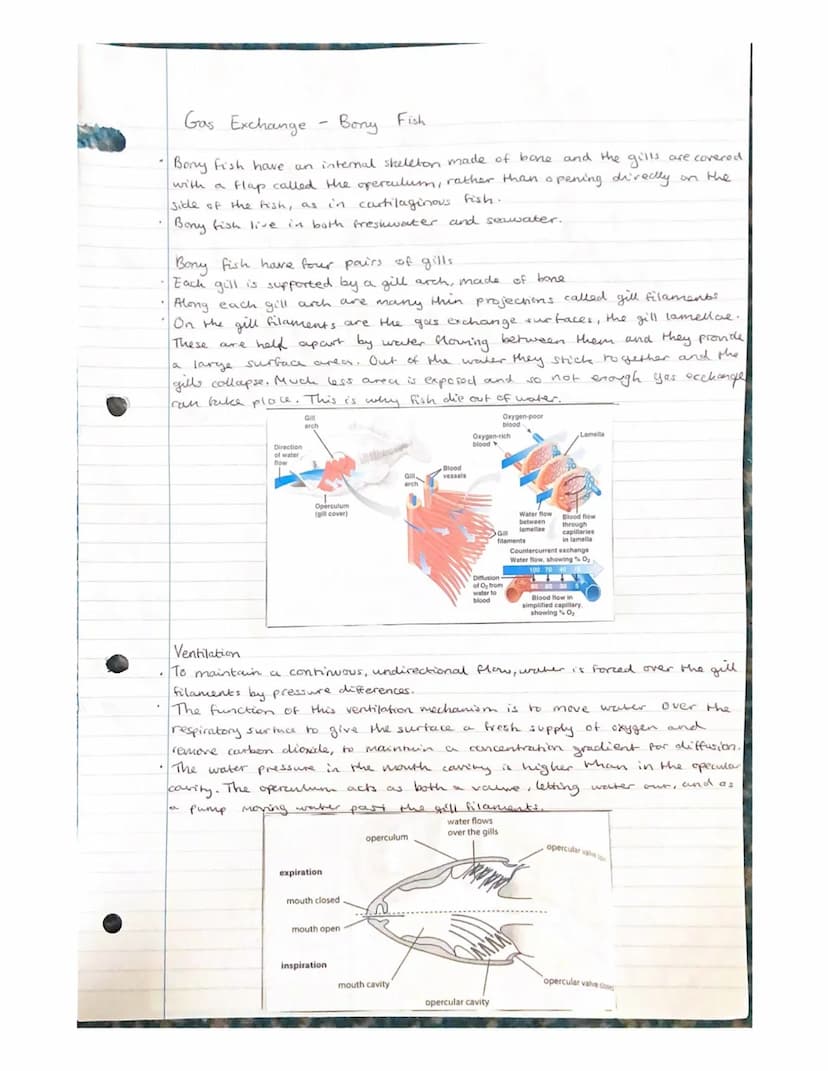 Gas Exchange - Bony Fish
· Bony fish have an internal skeleton made of bone and the gills are covered
with a flap called the operculum, rather than opening directly on the
side of the fish, as in cartilaginous fish.
· Bony fish live in both freshwater and seawater.
Bony fish have four pairs of gills
· Each gill is supported by a gill arch, made of bone
· Along each gill arch are many thin projections called gill filaments
· On the gill filaments are the gas exchange surfaces, the gill lamellae.
These are held apart by water flowing between them and they provide
a large surface area. Out of the water they stick together and the
gills collapse. Much less area is exposed and so not enough gas exchange
can take place. This is why fish die out of water.
Gill
arch
Direction
of water
flow
Operculum
(gill cover)
Gill
arch
Blood
vessels
Gill
filaments
Oxygen-poor
blood
Oxygen-rich
blood
Lamella
Water flow
between
lamellae
Blood flow
through
capillaries
in lamella
Countercurrent exchange
Water flow, showing % O₂
100 70 40 15
Diffusion
of O₂ from
water to
blood
Blood flow in
simplified capillary,
showing % O₂
Ventilation
· To maintain a continuous, undirectional flow, water is forced over the gill
filaments by pressure differences.
· The function of this ventilation mechanism is to move water over the
respiratory surface to give the surface a fresh supply of oxygen and
remove carbon dioxide, to maintain a concentration gradient for diffusion.
· The water pressure in the mouth cavity is higher than in the opecular
cavity. The operculum acts as both a valve, letting water out, and as
a pump moving water past the gill filaments.
water flows
over the gills
operculum
opercular valve
expiration
mouth closed
mouth open
inspiration
mouth cavity
opercular cavity
opercular valve closed